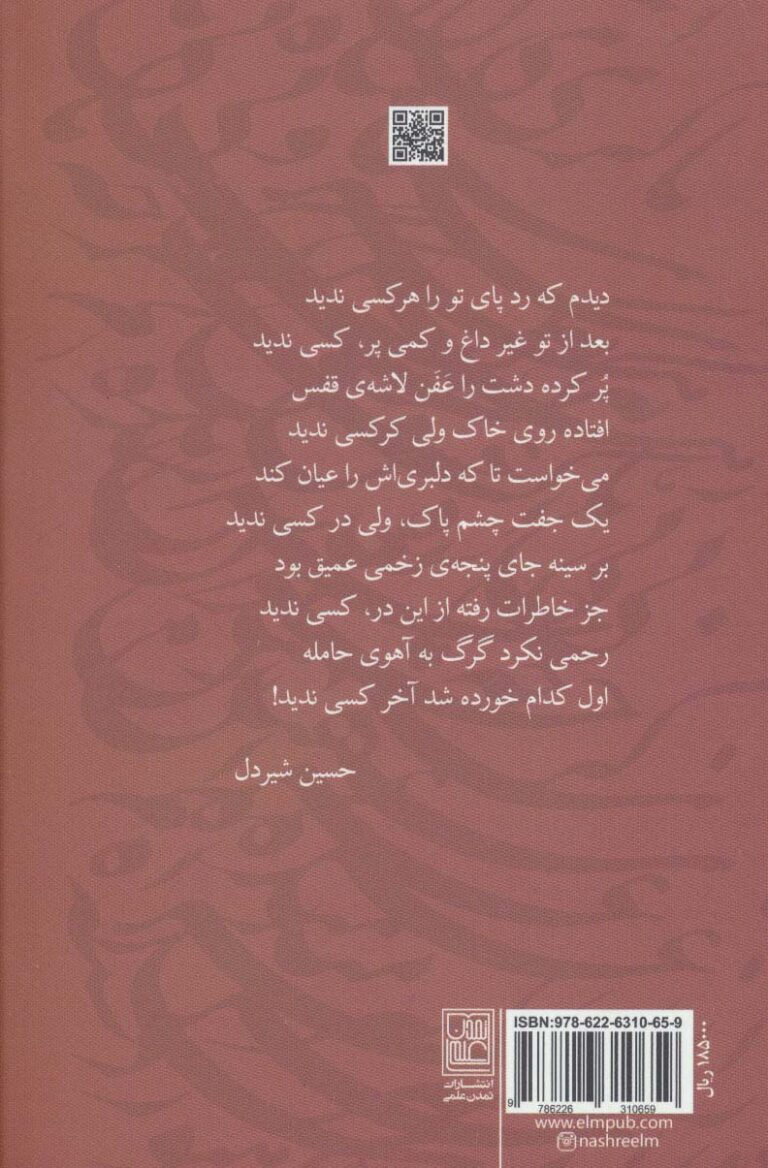 دیدم که رد پای تو را هرکسی ندید
بعد از تو غیر داغ و کمی پر، کسی ندید
پُر کرده دشت را عَفَن لاشه‌ی قفس
افتاده روی خاک ولی کرکسی ندید
می‌خواست تا که دلبری‌اش را عیان کند
یک جفت چشم پاک، ولی در کسی ندید
بر سینه جای پنجه‌ی زخمی عمیق بود
جز خاطرات رفته از این در، کسی ندید
رحمی نکرد گرگ به آهوی حامله
اول کدام خورده شد آخر کسی ندید!
حسین شیردل
تمدن
علمی
انتشارات
تمدن علمی
ISBN:978-622-6310-65-9
9 786226 310659
۱۸۵۰۰۰ ریال
www.elmpub.com
nashreelm